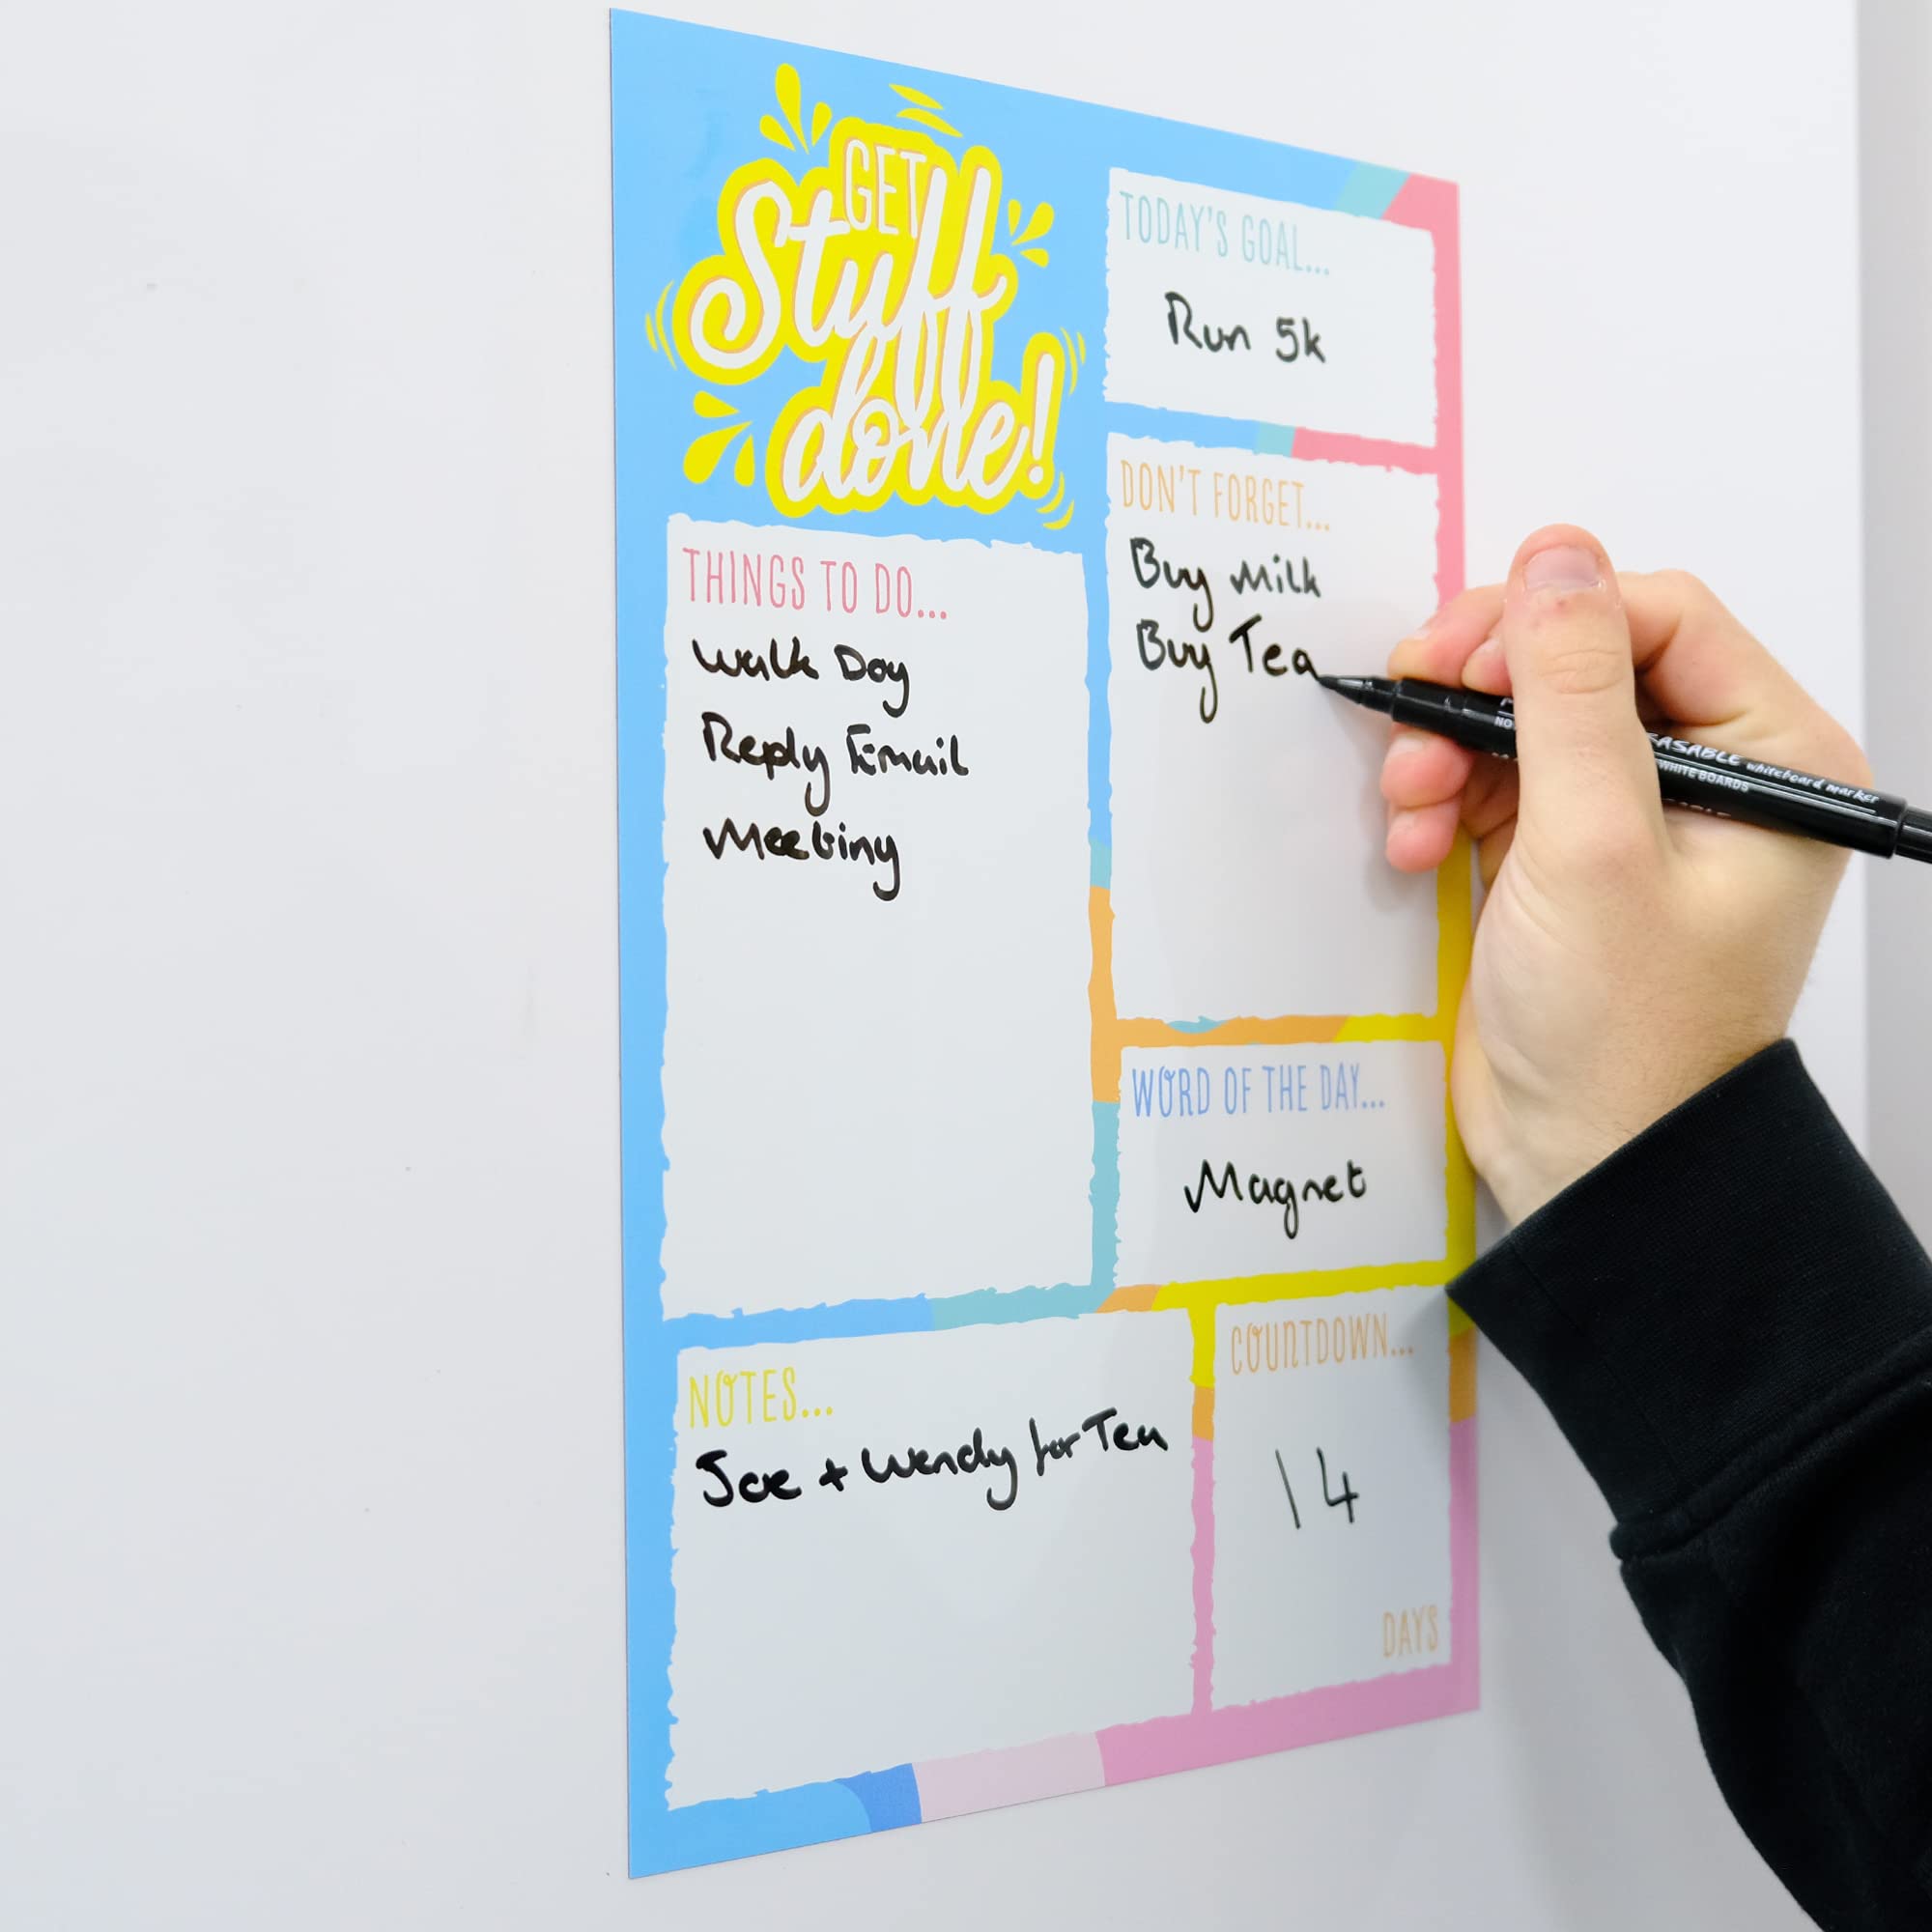 GET
Stuff
done!
TODAY'S GOAL...
Run 5k
DON'T FORGET...
Buy Milk
Buy Tea
THINGS TO DO...
Walk Dog
Reply Email
Meeting
WORD OF THE DAY...
Magnet
NOTES...
Joe + Wendy for Tea
COUNTDOWN...
14
DAYS
whiteboard marker
WHITE BOARDS